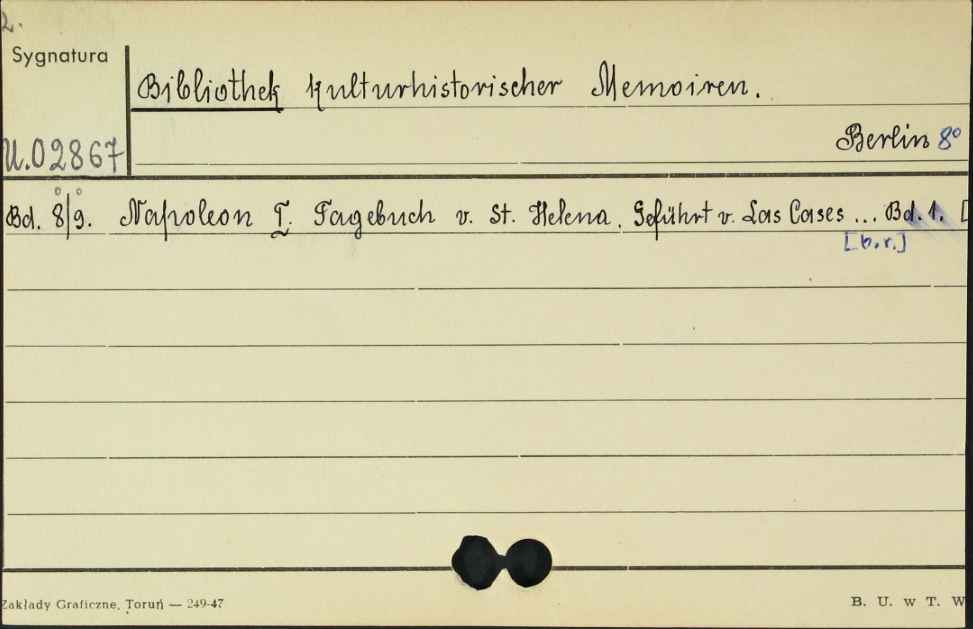 2.
Sygnatura
Bibliothek kulturhistorischer Memoiren.
Berlin 8°
U.02867
Bd. 8/9. Napoleon I. Tagebuch v. St. Helena. Geführt v. Las Cases ... Bd. 1. [
[b.r.]
Zakłady Graficzne, Toruń — 249-47
B. U. w T. W